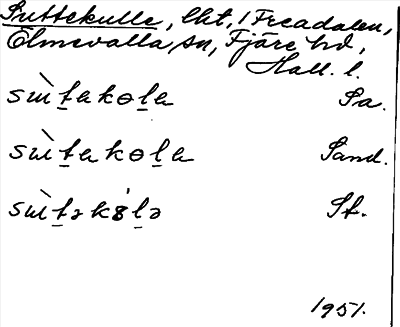 Suttekulle, lht, i Freadalen,
Ölmevalla sn, Fjäre hd,
Hall. l.
sɯ̀t̠akɵl̠a Sa.
sɯ̀t̠akɵl̠a Sand.
sɯ̀t̠əkɵ̍l̠ə St.
1951.